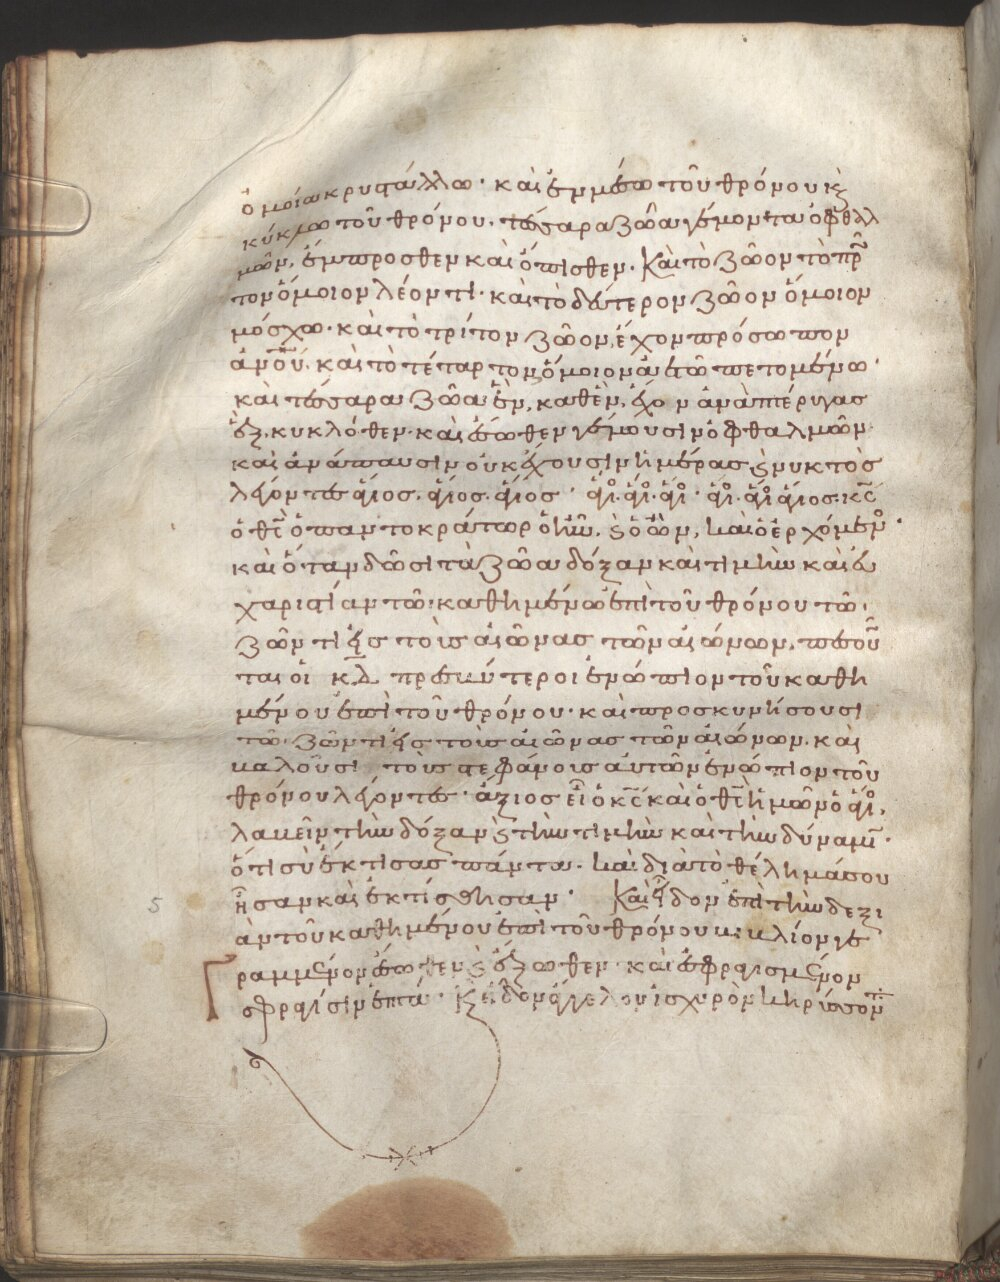 ὁμοίω κρυστάλλω· και ἐν μέσω τοῦ θρόνου κ(αὶ)
κύκλω τοῦ θρόνου. τέσσαρα ζῶα γέμοντα ὀφθαλ
μῶν, ἔμπροσθεν και ὄπισθεν· Και το ζῶον το πρῶ
τον ὅμοιον λέοντι· και το δεύτερον ζῶον ὅμοιον
μόσχω· και το τρίτον ζῶον, ἔχον πρόσωπον
ἀνο̅υ̅. και το τέταρτον ὅμοιον ἀετῶ πετομένω·
και τέσσαρα ζῶα ἓν, καθἓν, ἔχον ἀνὰ πτέρυγας
ἓξ. κυκλόθεν· και ἔσωθεν γέμουσιν ὀφθαλμῶν·
και ἀνάπαυσιν οὐκ ἔχουσιν ἡμέρας ϗ νυκτὸς
λέγοντες ἅγιος. ἅγιος. ἅγιος· ἅγι. ἅγι. ἅγι· ἅγι. ἅγι ἅγιος· κ̅ς̅
ὁ θ̅ς̅ ὁ παντοκράτωρ ὁ ἦν. ϗ ὁ ὢν, και ὁ ἐρχόμεν·
και ὅταν δῶσι τὰ ζῶα δόξαν και τιμὴν και εὐ
χαριστίαν τῶ καθημένω ἐπὶ τοῦ θρόνου τῶ
ζῶντι εἰς τοὺς αἰῶνας τῶν αἰώνων, πεσοῦ̅
ται οἱ κ̅δ̅ πρεσβύτεροι ἐνώπιον τοῦ καθη
μένου ἐπὶ τοῦ θρόνου· και προσκυνήσουσι
τῶ ζῶντι εἰς τοὺς αἰῶνας τῶν αἰώνων. και
βαλοῦσι τοὺς στεφάνοις αὐτῶν ἐνώπιον τοῦ
θρόνου λέγοντες· ἄξιος εἶ ὁ κ̅ς̅ και ὁ θ̅ς̅ ἡμῶν ὁ ἅγι.
λαβεῖν τὴν δόξαν ϗ τὴν τιμὴν και τὴν δύναμι̅·
ὅτι σὺ ἔκτισας πάντα. και διὰ τὸ θέλημά σου
ἦσαν και ἐκτίσθησαν· Και εἶδον ἐπὶ τὴν δεξι
ὰν τοῦ καθημένου ἐπὶ τοῦ θρόνου βιβλίον γε
γραμμένον ἔσωθεν ϗ ἔξωθεν· και ἐσφραγισμένον
σφραγίσιν ἑπτά· Κ(αὶ) εἶδον ἄγγελον ἰσχυρὸν κηρύσσον